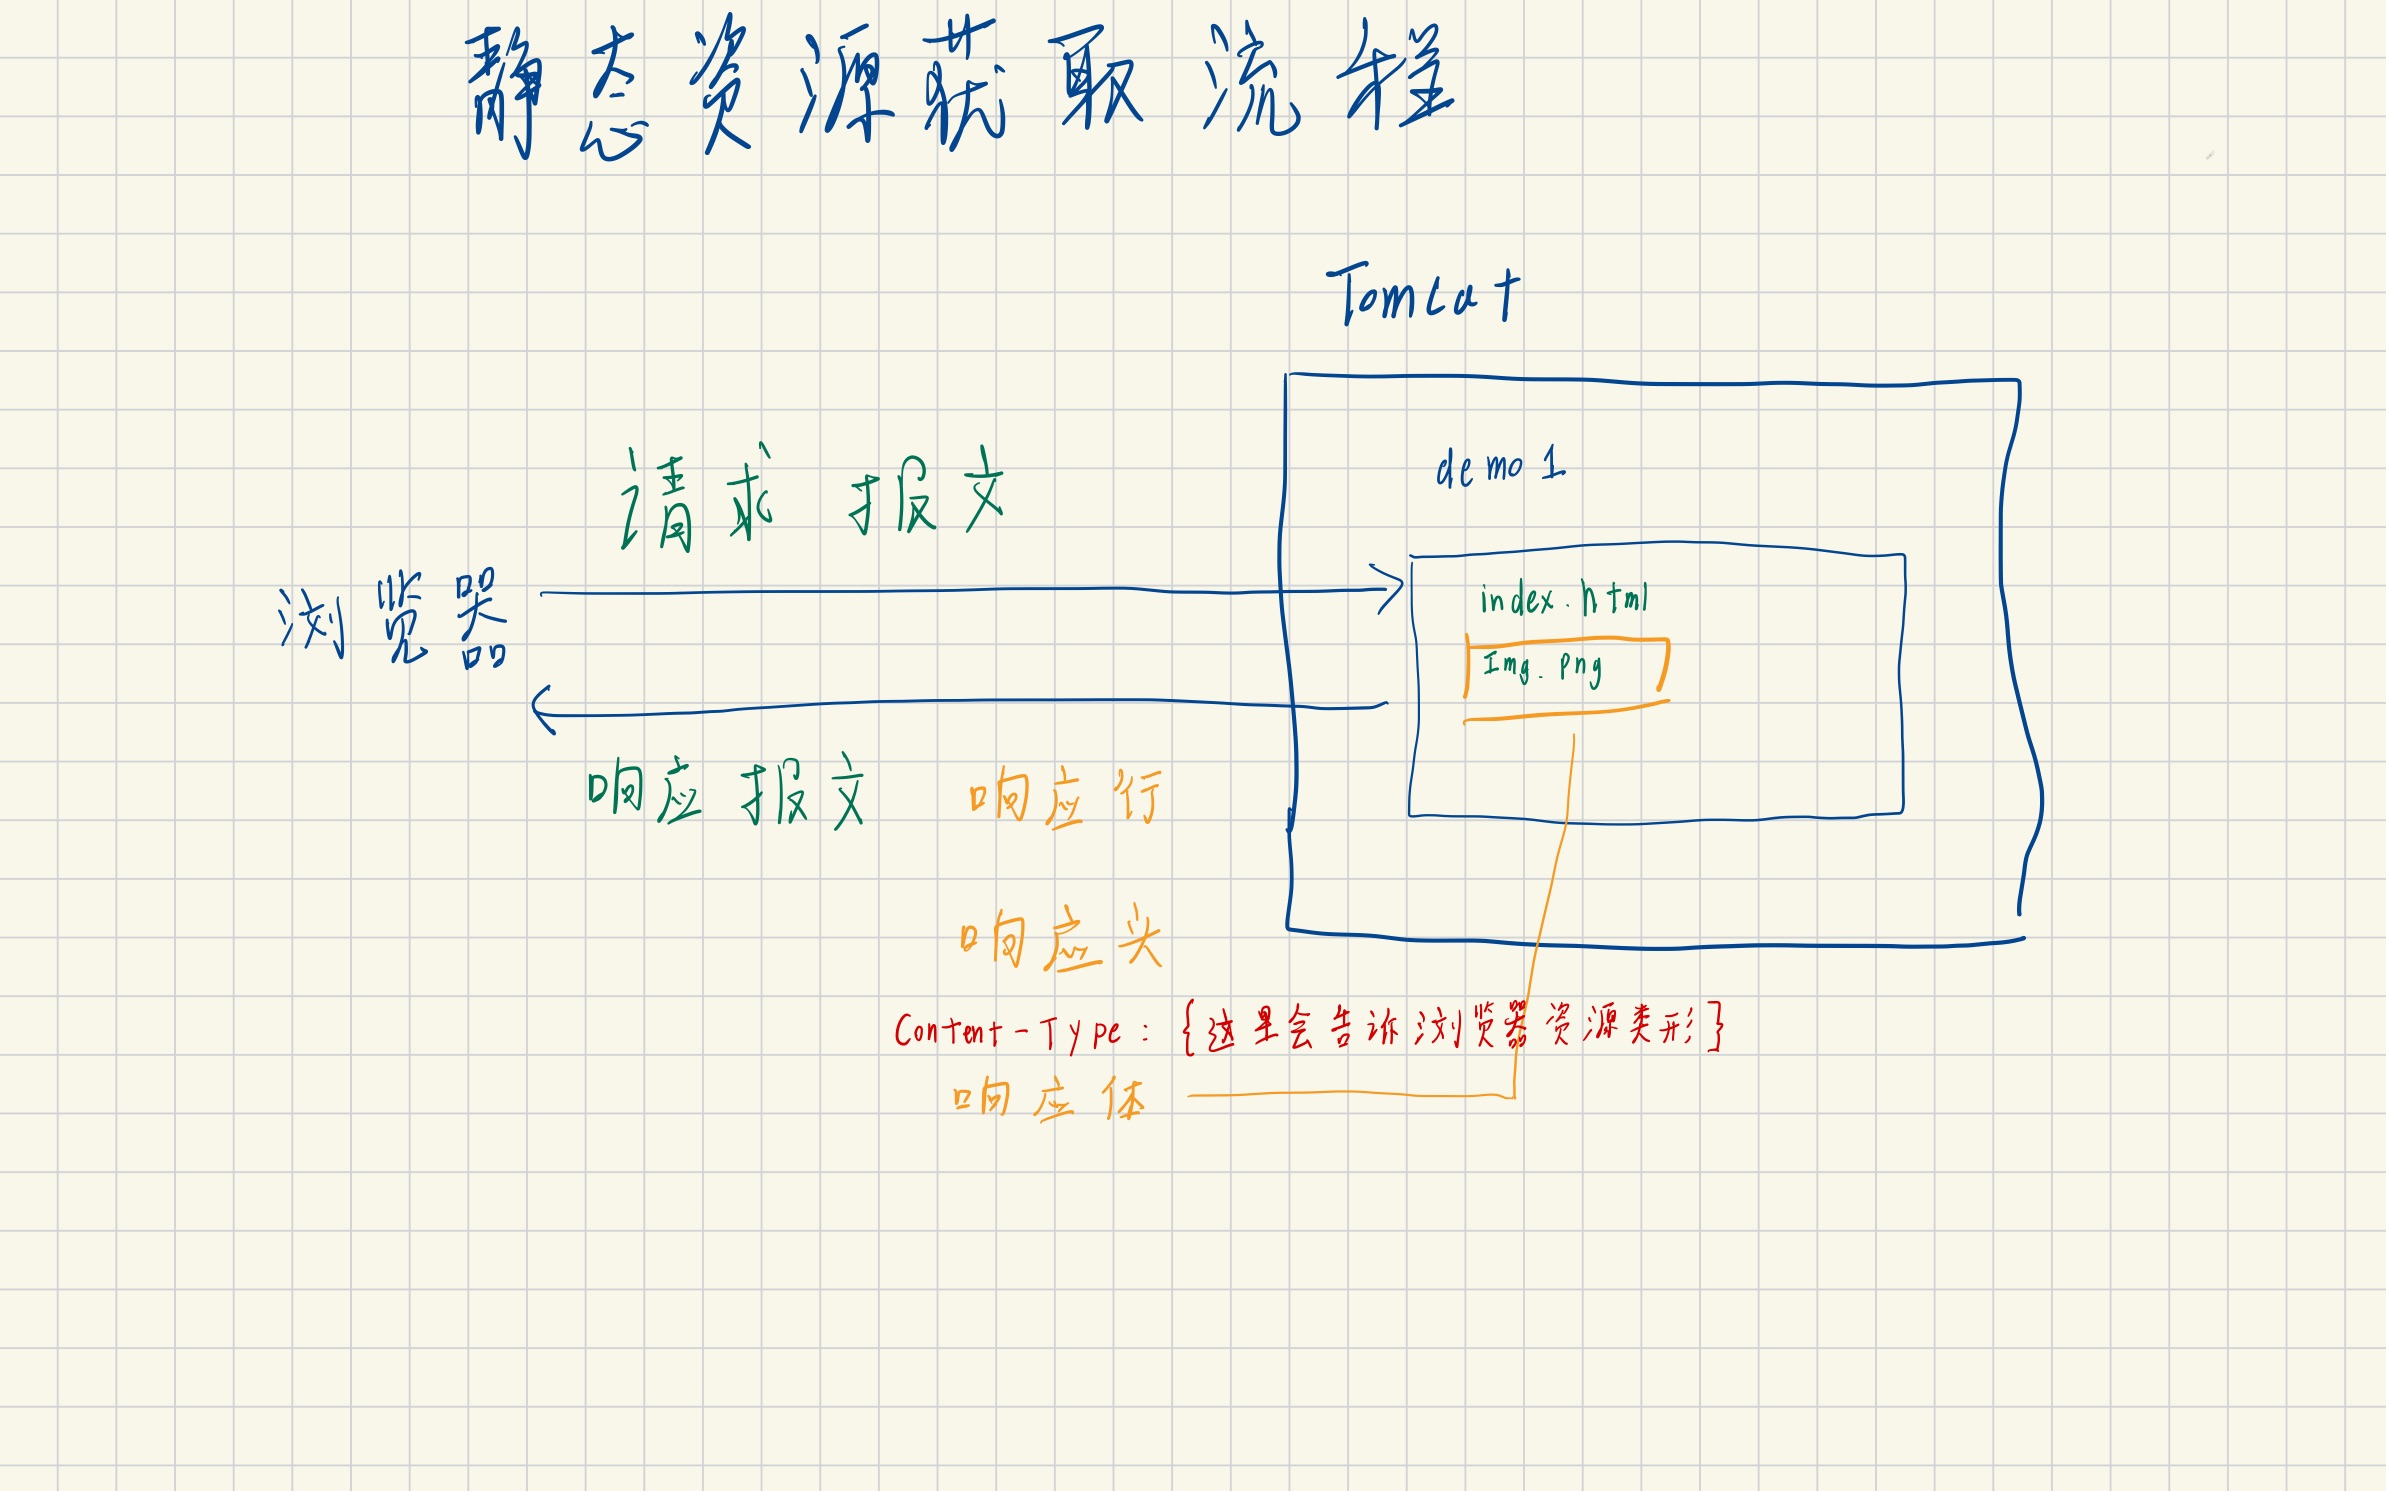 静态资源获取流程
Tomcat
demo1
请求报文
浏览器
index.html
Img.png
响应报文
响应行
响应头
Content-Type:{这里会告诉浏览器资源类形}
响应体